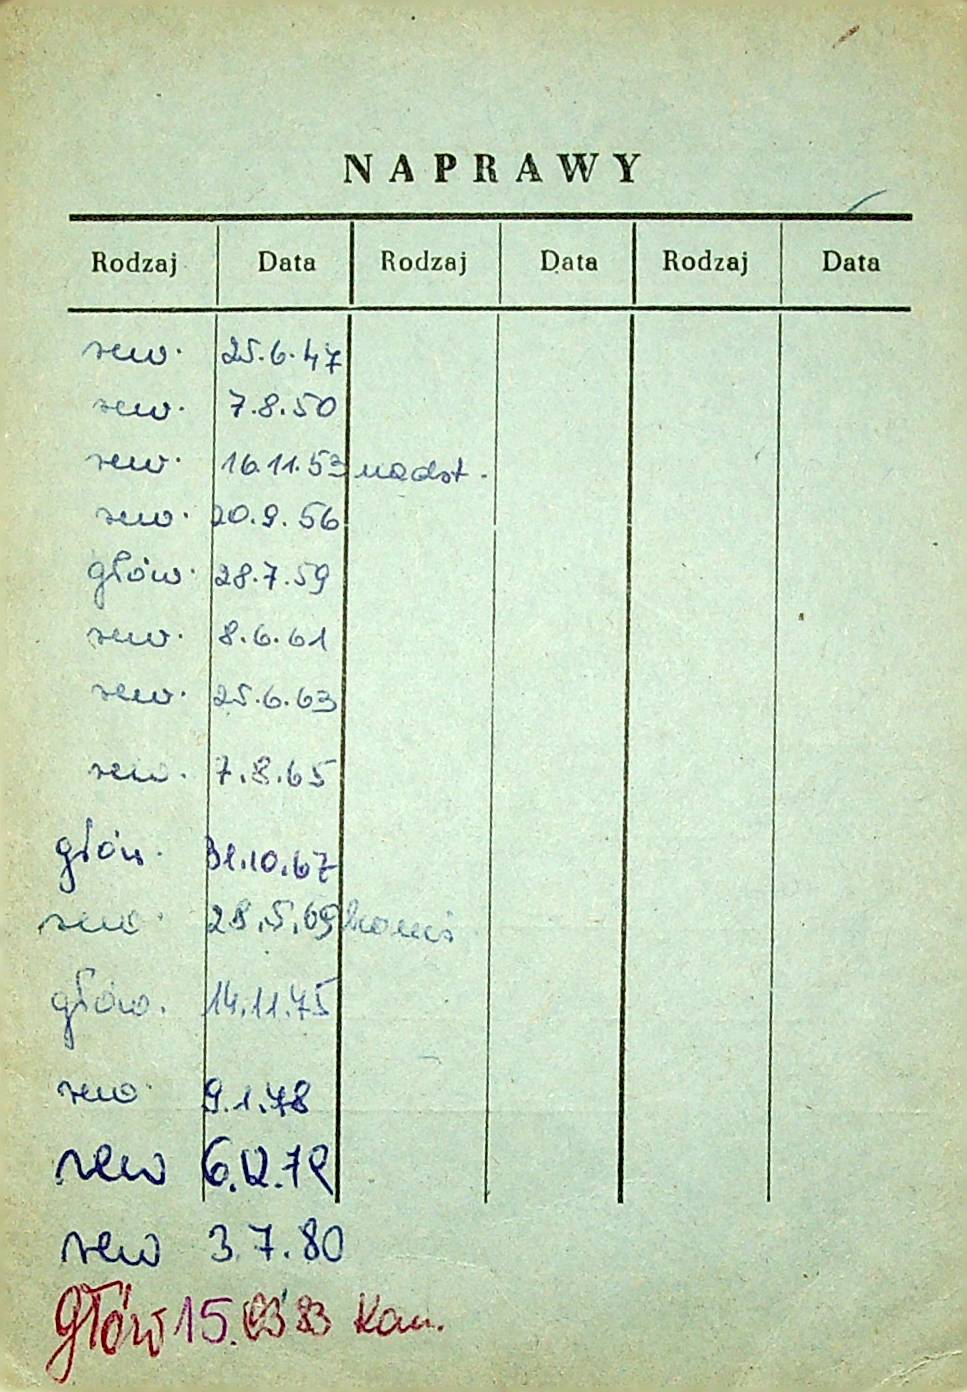 NAPRAWY
Rodzaj Data Rodzaj Data Rodzaj Data
rew. 25.6.47
rew. 7.8.50
rew. 16.11.53 nadst.
rew. 20.9.56
głów. 28.7.59
rew. 8.6.61
rew. 25.6.63
rew. 7.8.65
głów. 31.10.67
rew. 28.5.69
głów. 14.11.75
rew. 9.1.78
rew 6.12.79
rew 3.7.80
głów 15.03 83 Kan.